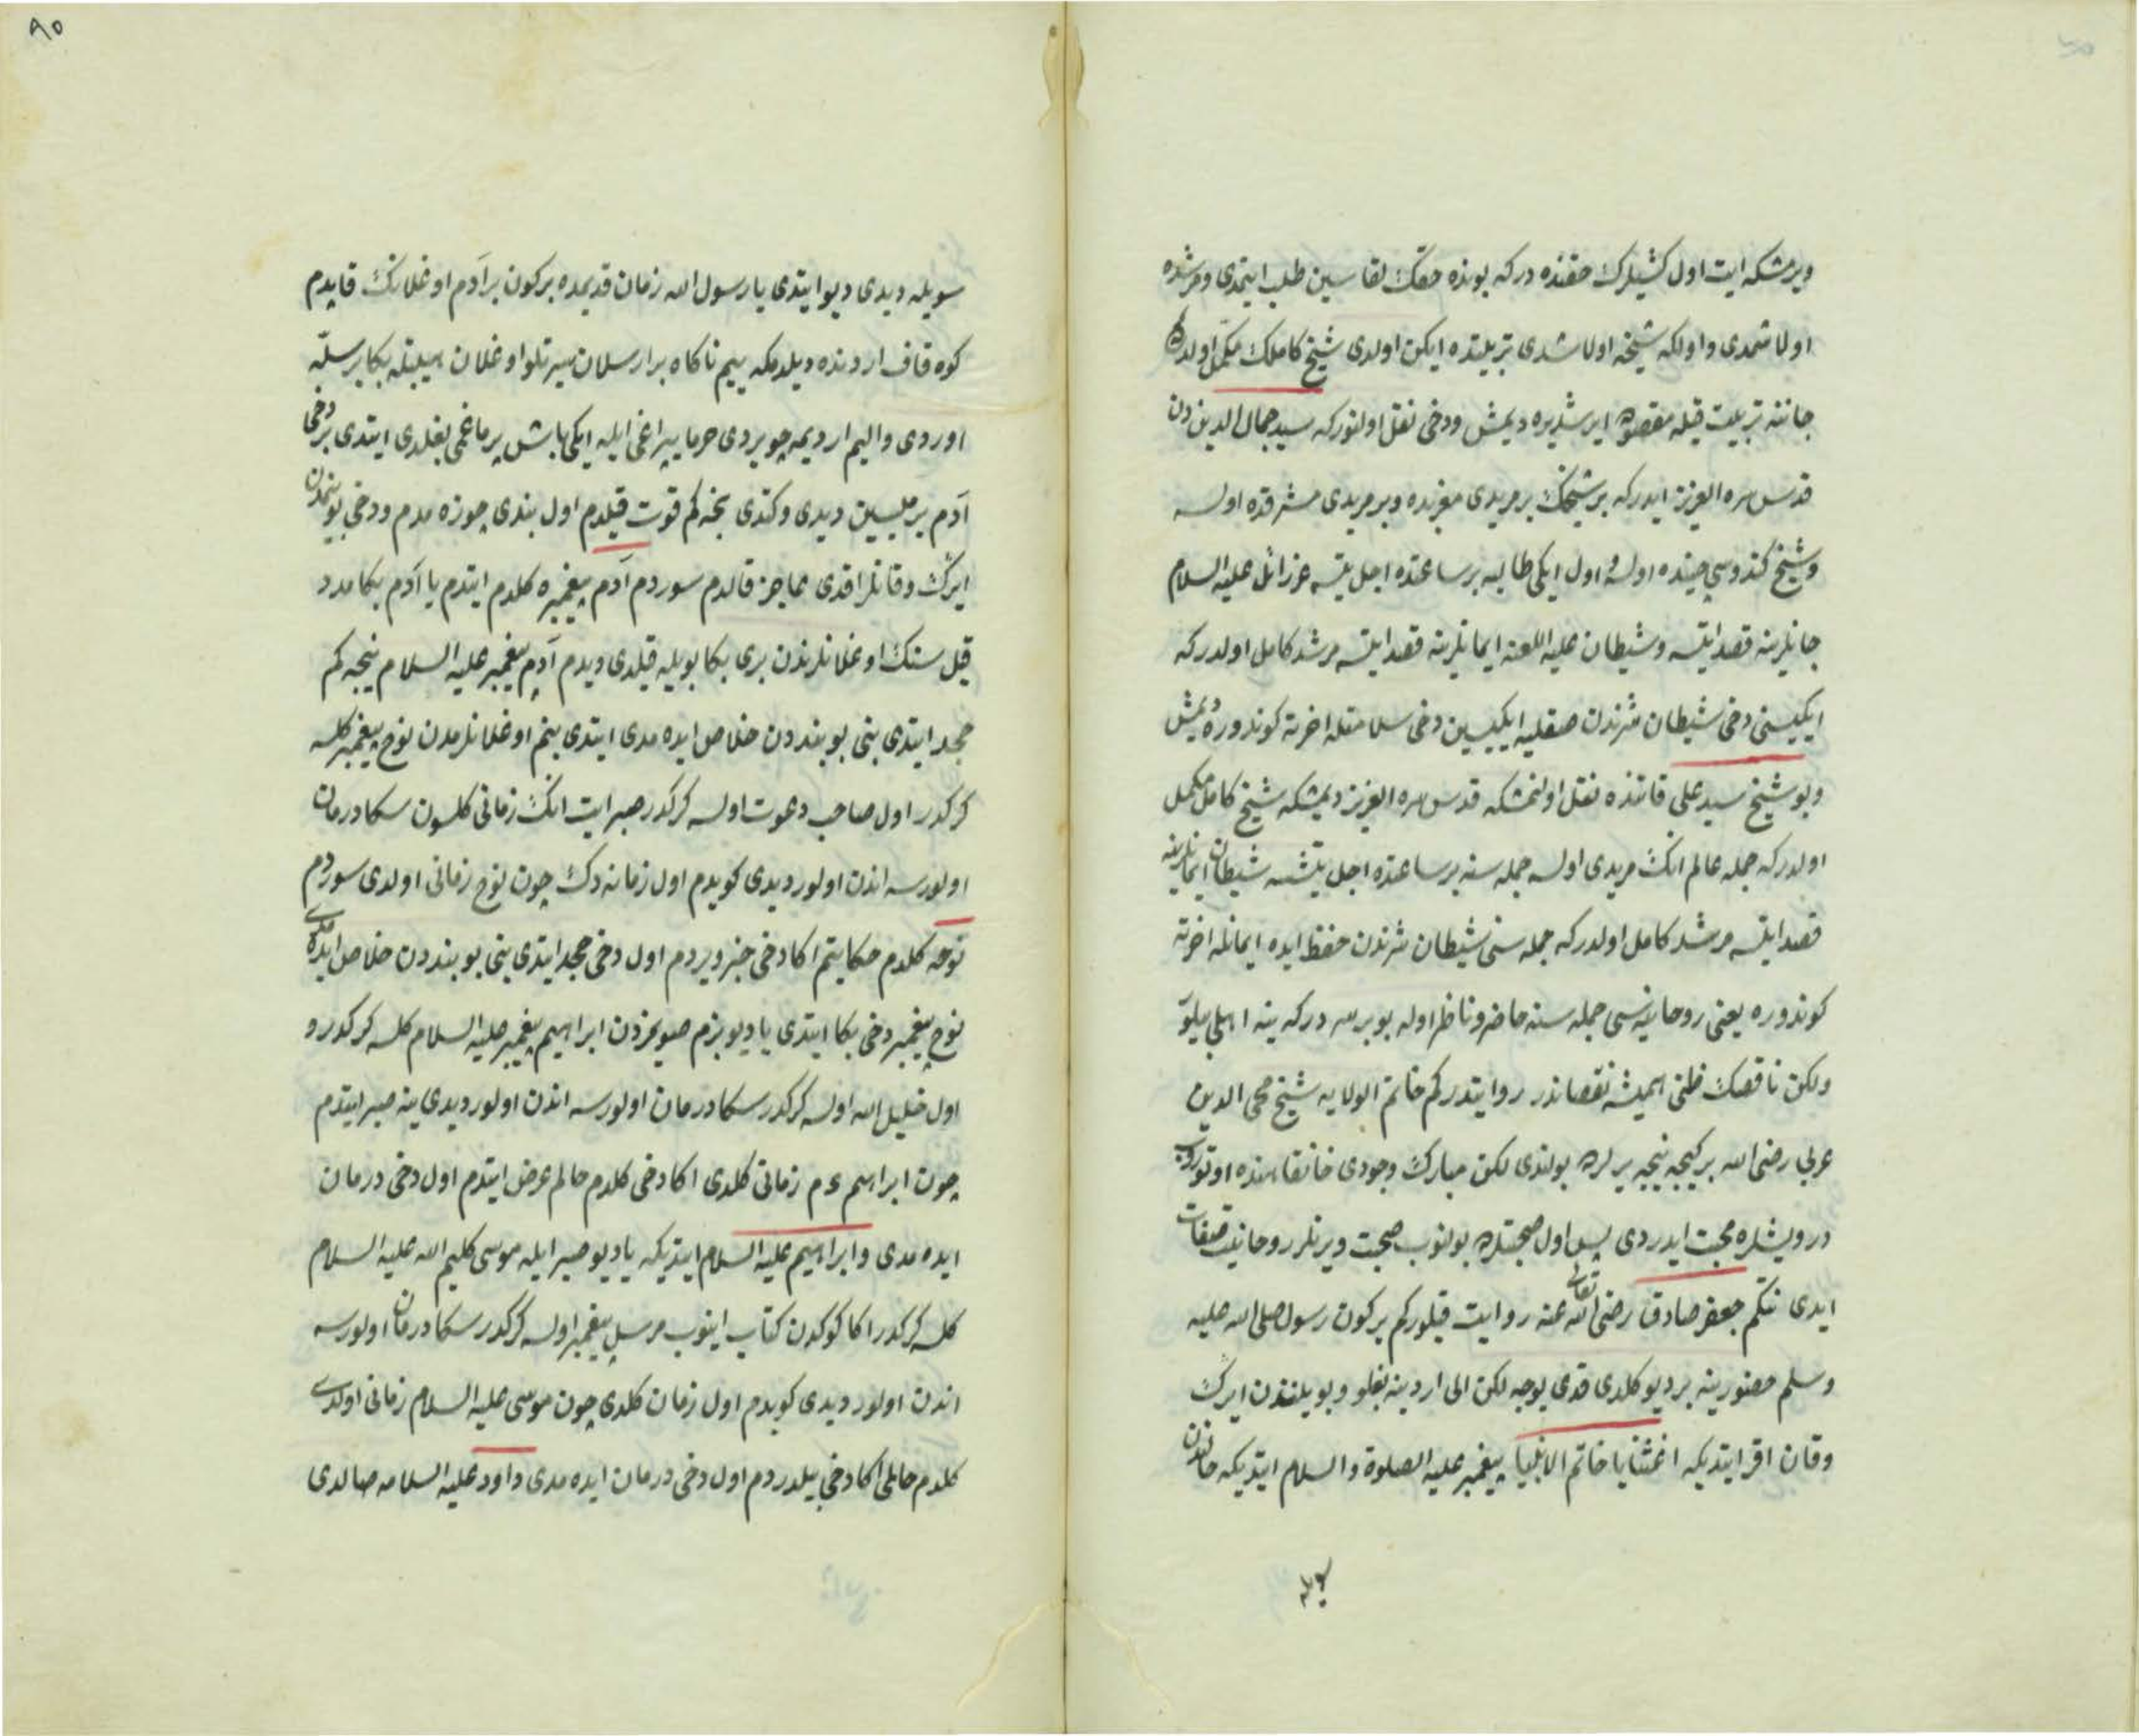 ویرمشکه ایت اول کشیلرک حقنده درکه بونده حقک لقاسین طلب ایتمدی ومرشده
اولاشمدی واولکه شیخه اولاشدی تربیتده ایکن اولدی شیخ کاملک مکمل اولدر
جاننه تربیت قیله مقصوده ایرشدیره دیمش ودخی نقل اولنورکه سید جمال الدین دن
قدس سره العزیز ایدرکه بر شیخک بر مریدی مغربده وبر مریدی مشرقده اولسه
وشیخ کندوسی چینده اولسه اول ایکی طالبه بر ساعتده اجل یتسه عزرائل علیه السلام
جانلرینه قصد ایتسه وشیطان علیه اللعنه ایمانلرینه قصد ایتسه مرشد کامل اولدرکه
ایکیسنی دخی شیطان شرندن صقلیه ایکیسین دخی سلامتله اخرته کوندوره دیمش
وبو شیخ سید علی قاتنده نقل اولنمشکه قدس سره العزیز دیمشکه شیخ کامل مکمل
اولدرکه جمله عالم انک مریدی اولسه جمله سنه بر ساعتده اجل یتشسه شیطان ایمانلرینه
قصد ایتسه مرشد کامل اولدرکه جمله سنی شیطان شرندن حفظ ایده ایمانله اخرته
کوندوره یعنی روحانیتسی جمله سنه حاضر وناظر اوله بو بر سر درکه ینه اهلی بیلور
ولکن ناقصک ظنی همیشه نقصاندر روایتدرکم خاتم الولایه شیخ محی الدین
عربی رضی الله بر کیجه نیجه یرلرده بولندی لکن مبارک وجودی خانقاهنده اوتوروب
درویشلره محبت ایدردی پس اول صحبتلرده بولنوب صحبت ویرنلر روحانیت صفات
ایدی نتکم جعفر صادق رضی الله تعالی عنه روایت قیلورکم بر کون رسول صلی الله علیه
وسلم حضورینه بر دیو کلدی قدی یوجه لکن الی اردینه بغلو وبویلندن ایرک
وقان اقر ایتدیکه اغثنا یا خاتم الانبیا پیغمبر علیه الصلوة والسلام ایتدیکه حالندن
سویله
سویله دیدی دیو ایتدی یا رسول الله زمان قدیمده بر کون بر آدم اوغلانک قاپدم
کوه قاف اردنده دیلدمکه ییم ناکاه بر ارسلان سیرتلو اوغلان هیبتله بکا بر سله
اوردی والیم اردیمه چویردی حرما یپراغی ایله ایکی باش پرماغمی بغلدی ایتدی بر دخی
آدم یرملیسین دیدی وکتدی نجه کم قوت قیلدم اول بندی چوزه مدم ودخی بوینمدن
ایرک وقانلر اقدی عاجز قالدم سوردم آدم پیغمبره کلدم ایتدم یا آدم بکا مدد
قیل سنک اوغلانلرندن بری بکا بویله قیلدی دیدم آدم پیغمبر علیه السلام نیجه کم
جهد ایتدی بنی بو بنددن خلاص ایده مدی ایتدی بنم اوغلانلرمدن نوح پیغمبر کلسه
کرکدر اول صاحب دعوت اولسه کرکدر صبر ایت انک زمانی کلسون سکا درمان
اولورسه اندن اولور دیدی کویدم اول زمانه دک چون نوح زمانی اولدی سوردم
نوحه کلدم حکایتم اکا دخی خبر ویردم اول دخی جهد ایتدی بنی بو بنددن خلاص ایده مدی
نوح پیغمبر دخی بکا ایتدی یا دیو بزم صویمزدن ابراهیم پیغمبر علیه السلام کلسه کرکدر و
اول خلیل الله اولسه کرکدر سکا درمان اولورسه اندن اولور دیدی ینه صبر ایتدم
چون ابراهیم ءم زمانی کلدی اکا دخی کلدم حالم عرض ایتدم اول دخی درمان
ایده مدی وابراهیم علیه السلام ایتدیکه یا دیو صبر ایله موسی کلیم الله علیه السلام
کلسه کرکدر اکا کوکدن کتاب اینوب مرسل پیغمبر اولسه کرکدر سکا درمان اولورسه
اندن اولور دیدی کویدم اول زمان کلدی چون موسی علیه السلام زمانی اولدی
کلدم حالمی اکا دخی بیلدردم اول دخی درمان ایده مدی داود علیه السلامه صالدی
٨٥